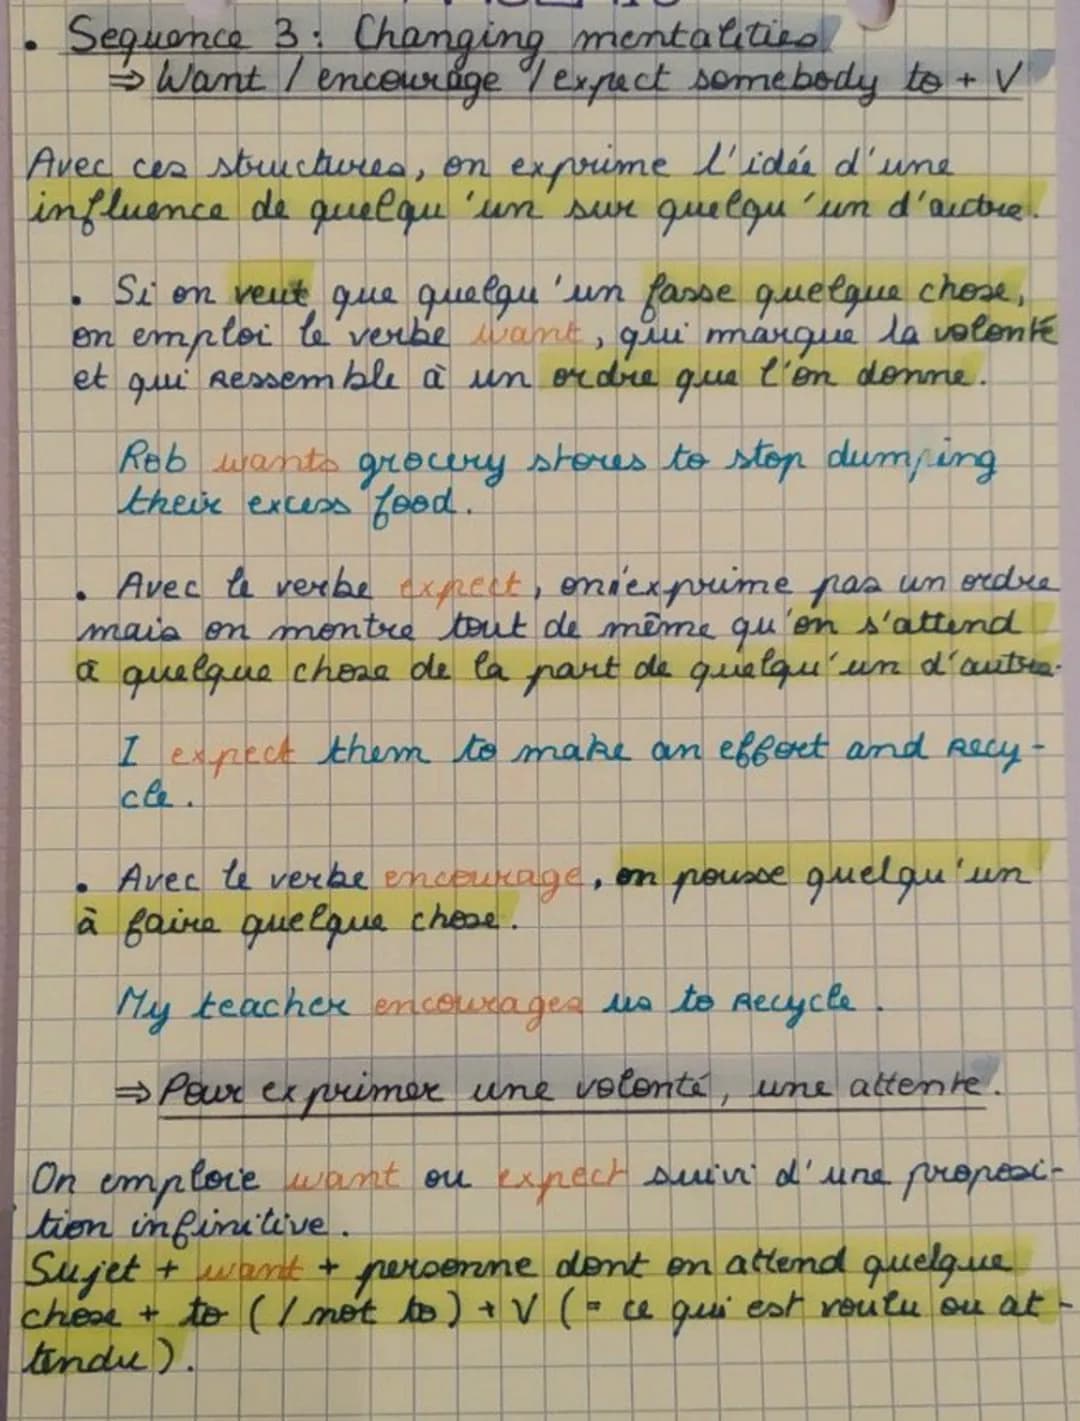 • Sequence 3 : Changing mentalities
⇒ Want / encourage / expect somebody to + V
Avec ces structures, on exprime l'idée d'une
influence de quelqu'un sur quelqu'un d'autre.
• Si on veut que quelqu'un fasse quelque chose,
on emploi le verbe want, qui marque la volonté
et qui ressemble à un ordre que l'on donne.
Rob wants grocery stores to stop dumping
their excess food.
• Avec le verbe expect, on n'exprime pas un ordre
mais on montre tout de même qu'on s'attend
à quelque chose de la part de quelqu'un d'autre.
I expect them to make an effort and recy-
cle.
• Avec le verbe encourage, on pousse quelqu'un
à faire quelque chose.
My teacher encourages us to recycle.
⇒ Pour exprimer une volonté, une attente.
On emploie want ou expect suivi d'une proposi-
tion infinitive.
Sujet + want + personne dont on attend quelque
chose + to (/ not to) + V (= ce qui est voulu ou at-
tendu).